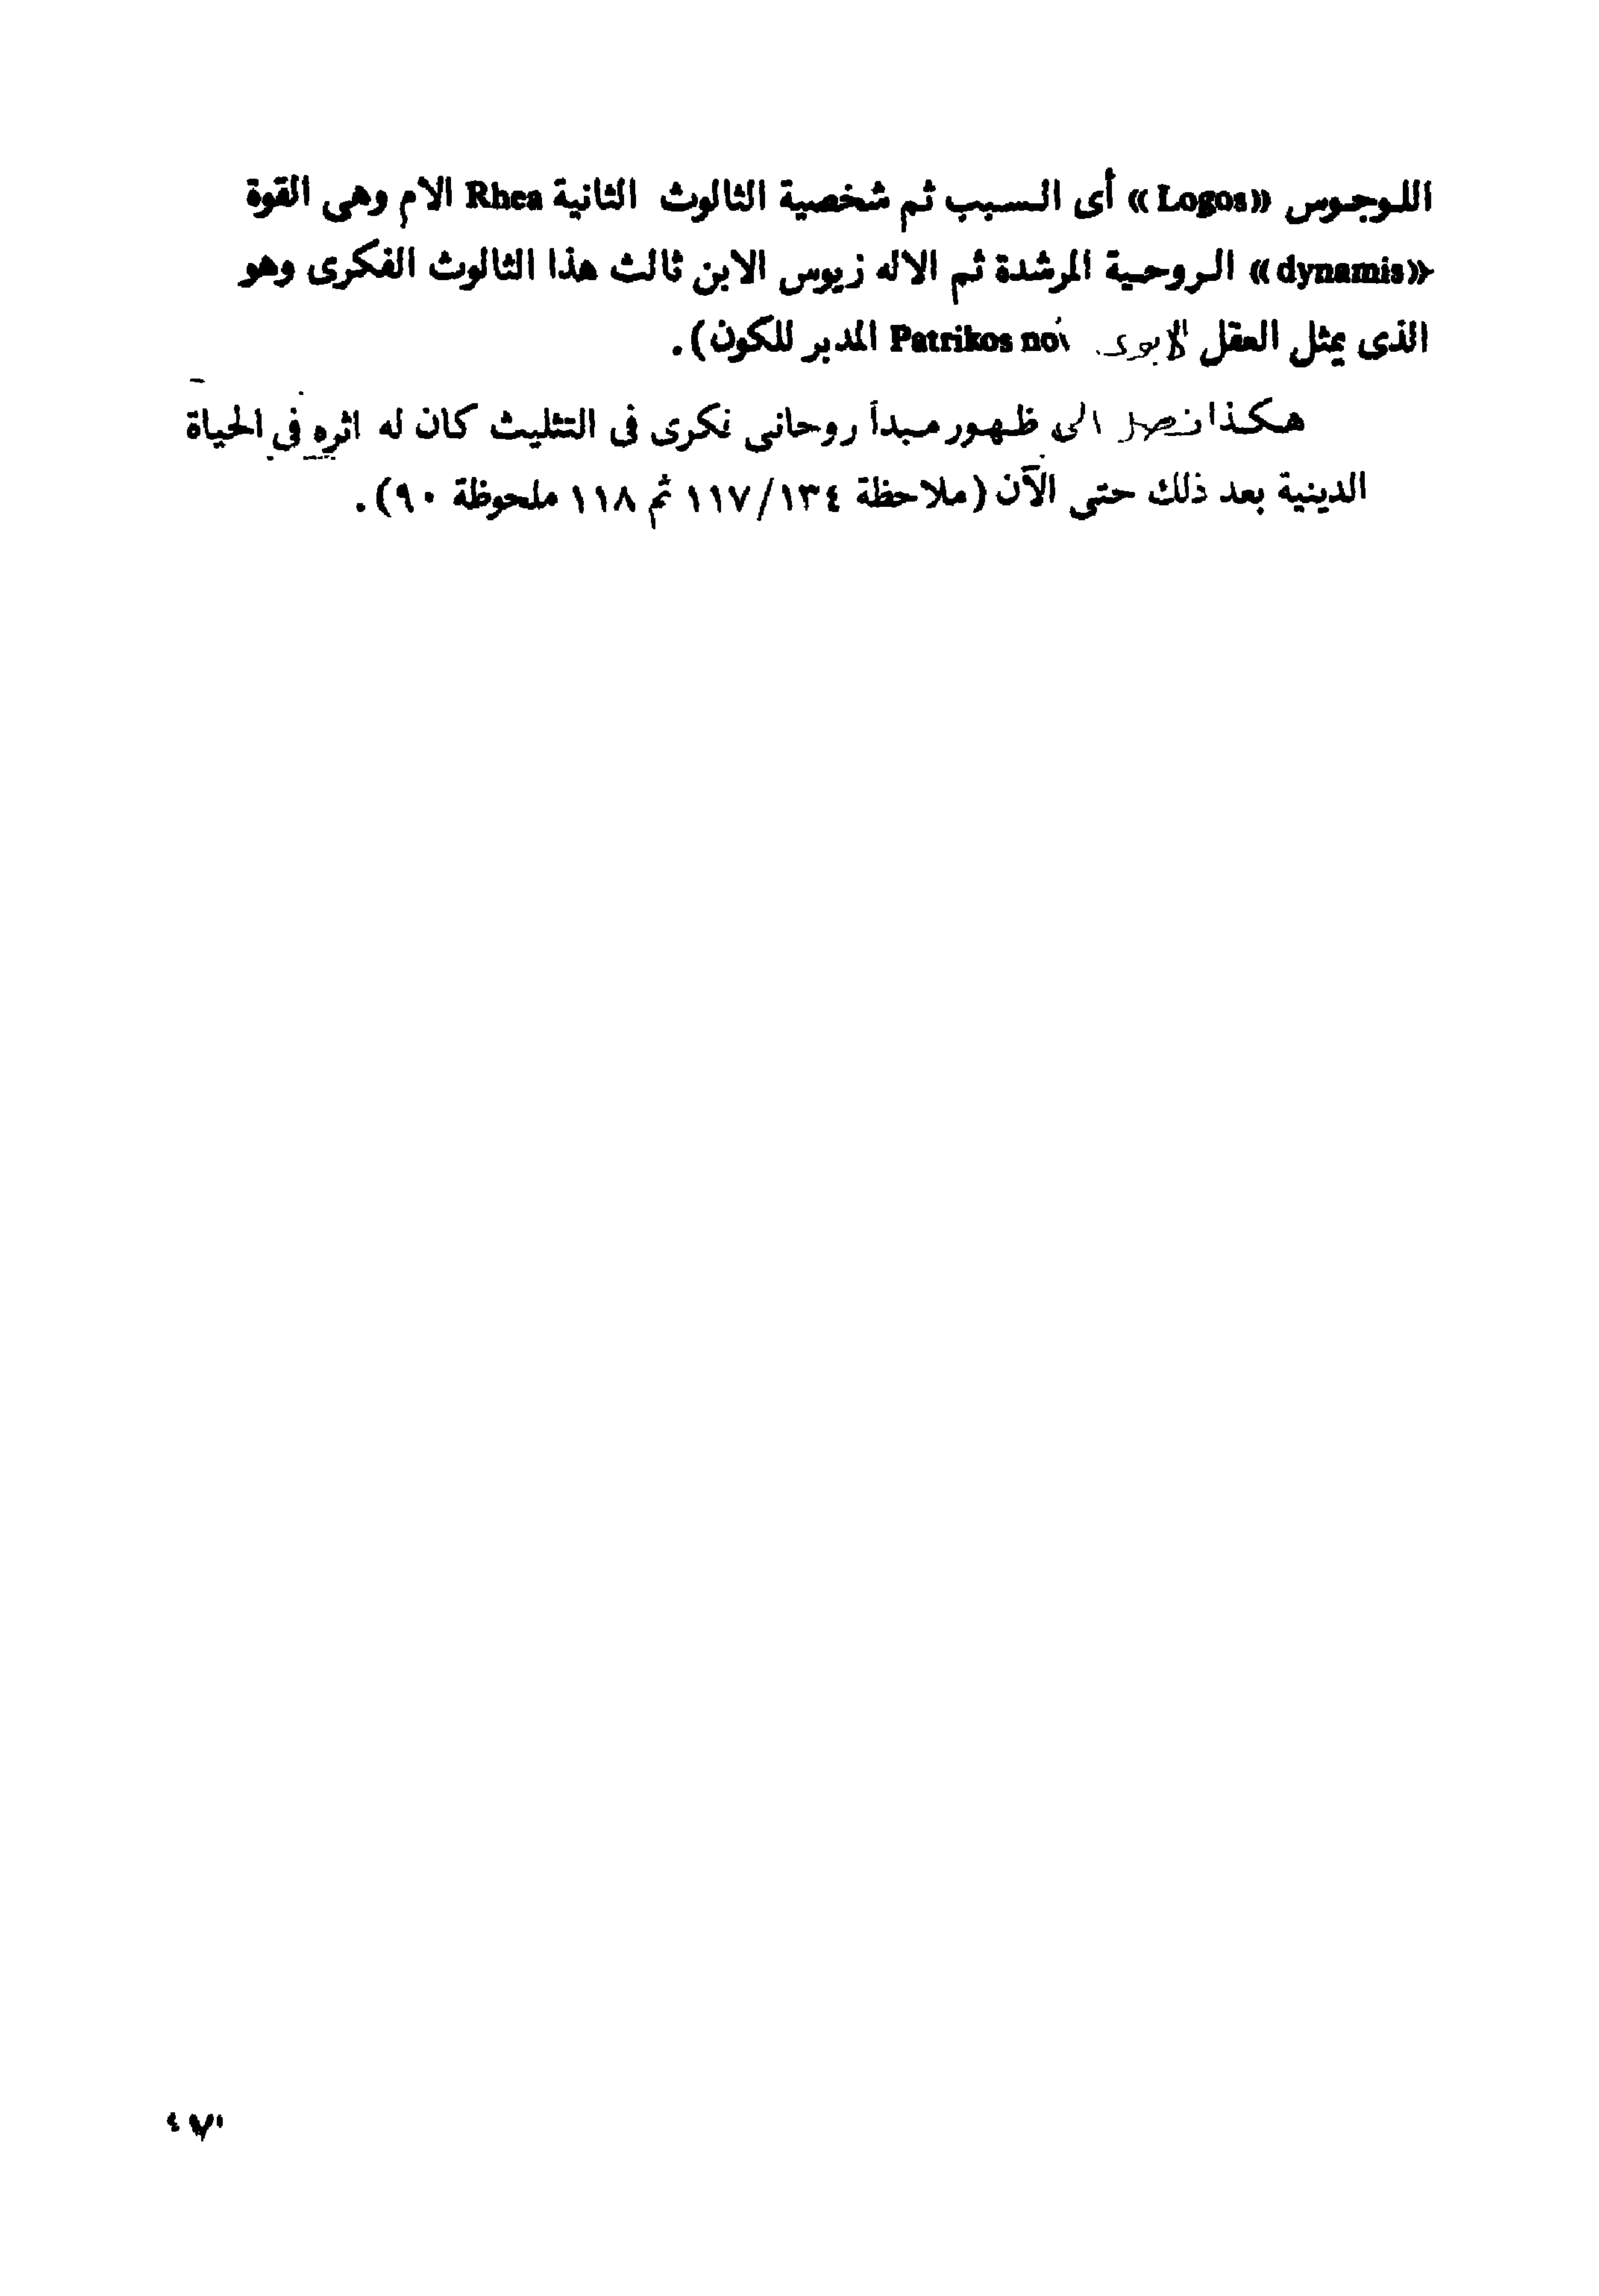 اللوجوس «Logos» أى السبب ثم شخصية الثالوث الثانية Rhea الام وهى القوة
«dynamis» الروحية المرشدة ثم الاله زيوس الابن ثالث هذا الثالوث الفكرى وهو
الذى يمثل العقل الابوى Patrikos المدبر للكون).
هكذا نصل الى ظهور مبدأ روحانى فكرى فى التثليث كان له اثره فى الحياة
الدينية بعد ذلك حتى الآن (ملاحظة ١١٧/١٣٤ ثم ١١٨ ملحوظة ٩٠).